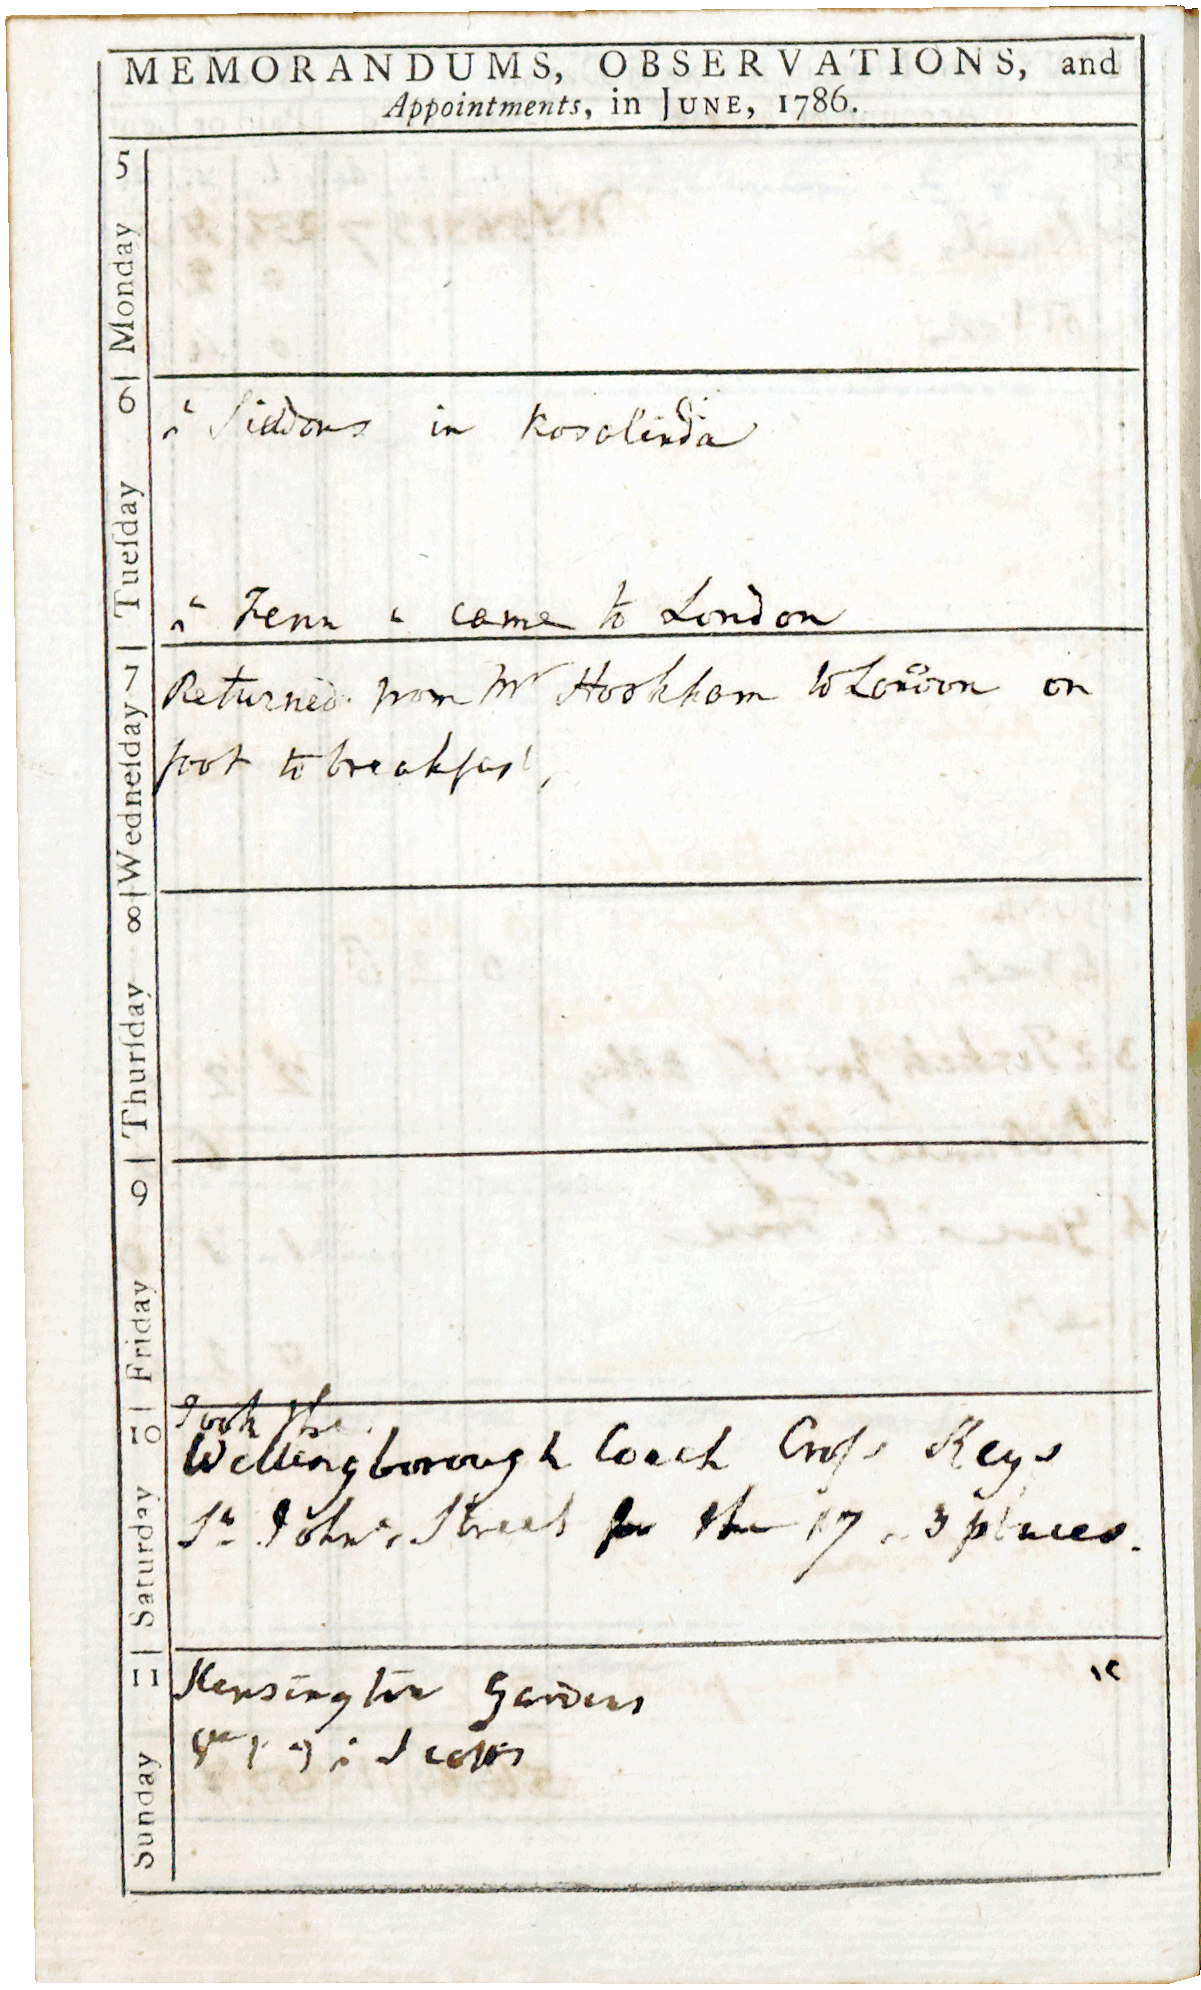 MEMORANDUMS, OBSERVATIONS, and
Appointments, in JUNE, 1786.
5 Monday
6 Tueſday
Siddons in Rosalinda
Fenn " came to London
7 Wedneſday
Returned from Mr Hookham to London on
foot to breakfast,
8 Thurſday
9 Friday
10 Saturday
Took the
Wellingborough Coach Croſs Keys
St. John's Street for the 17 .. 3 places.
11 Sunday
Kensington Gardens